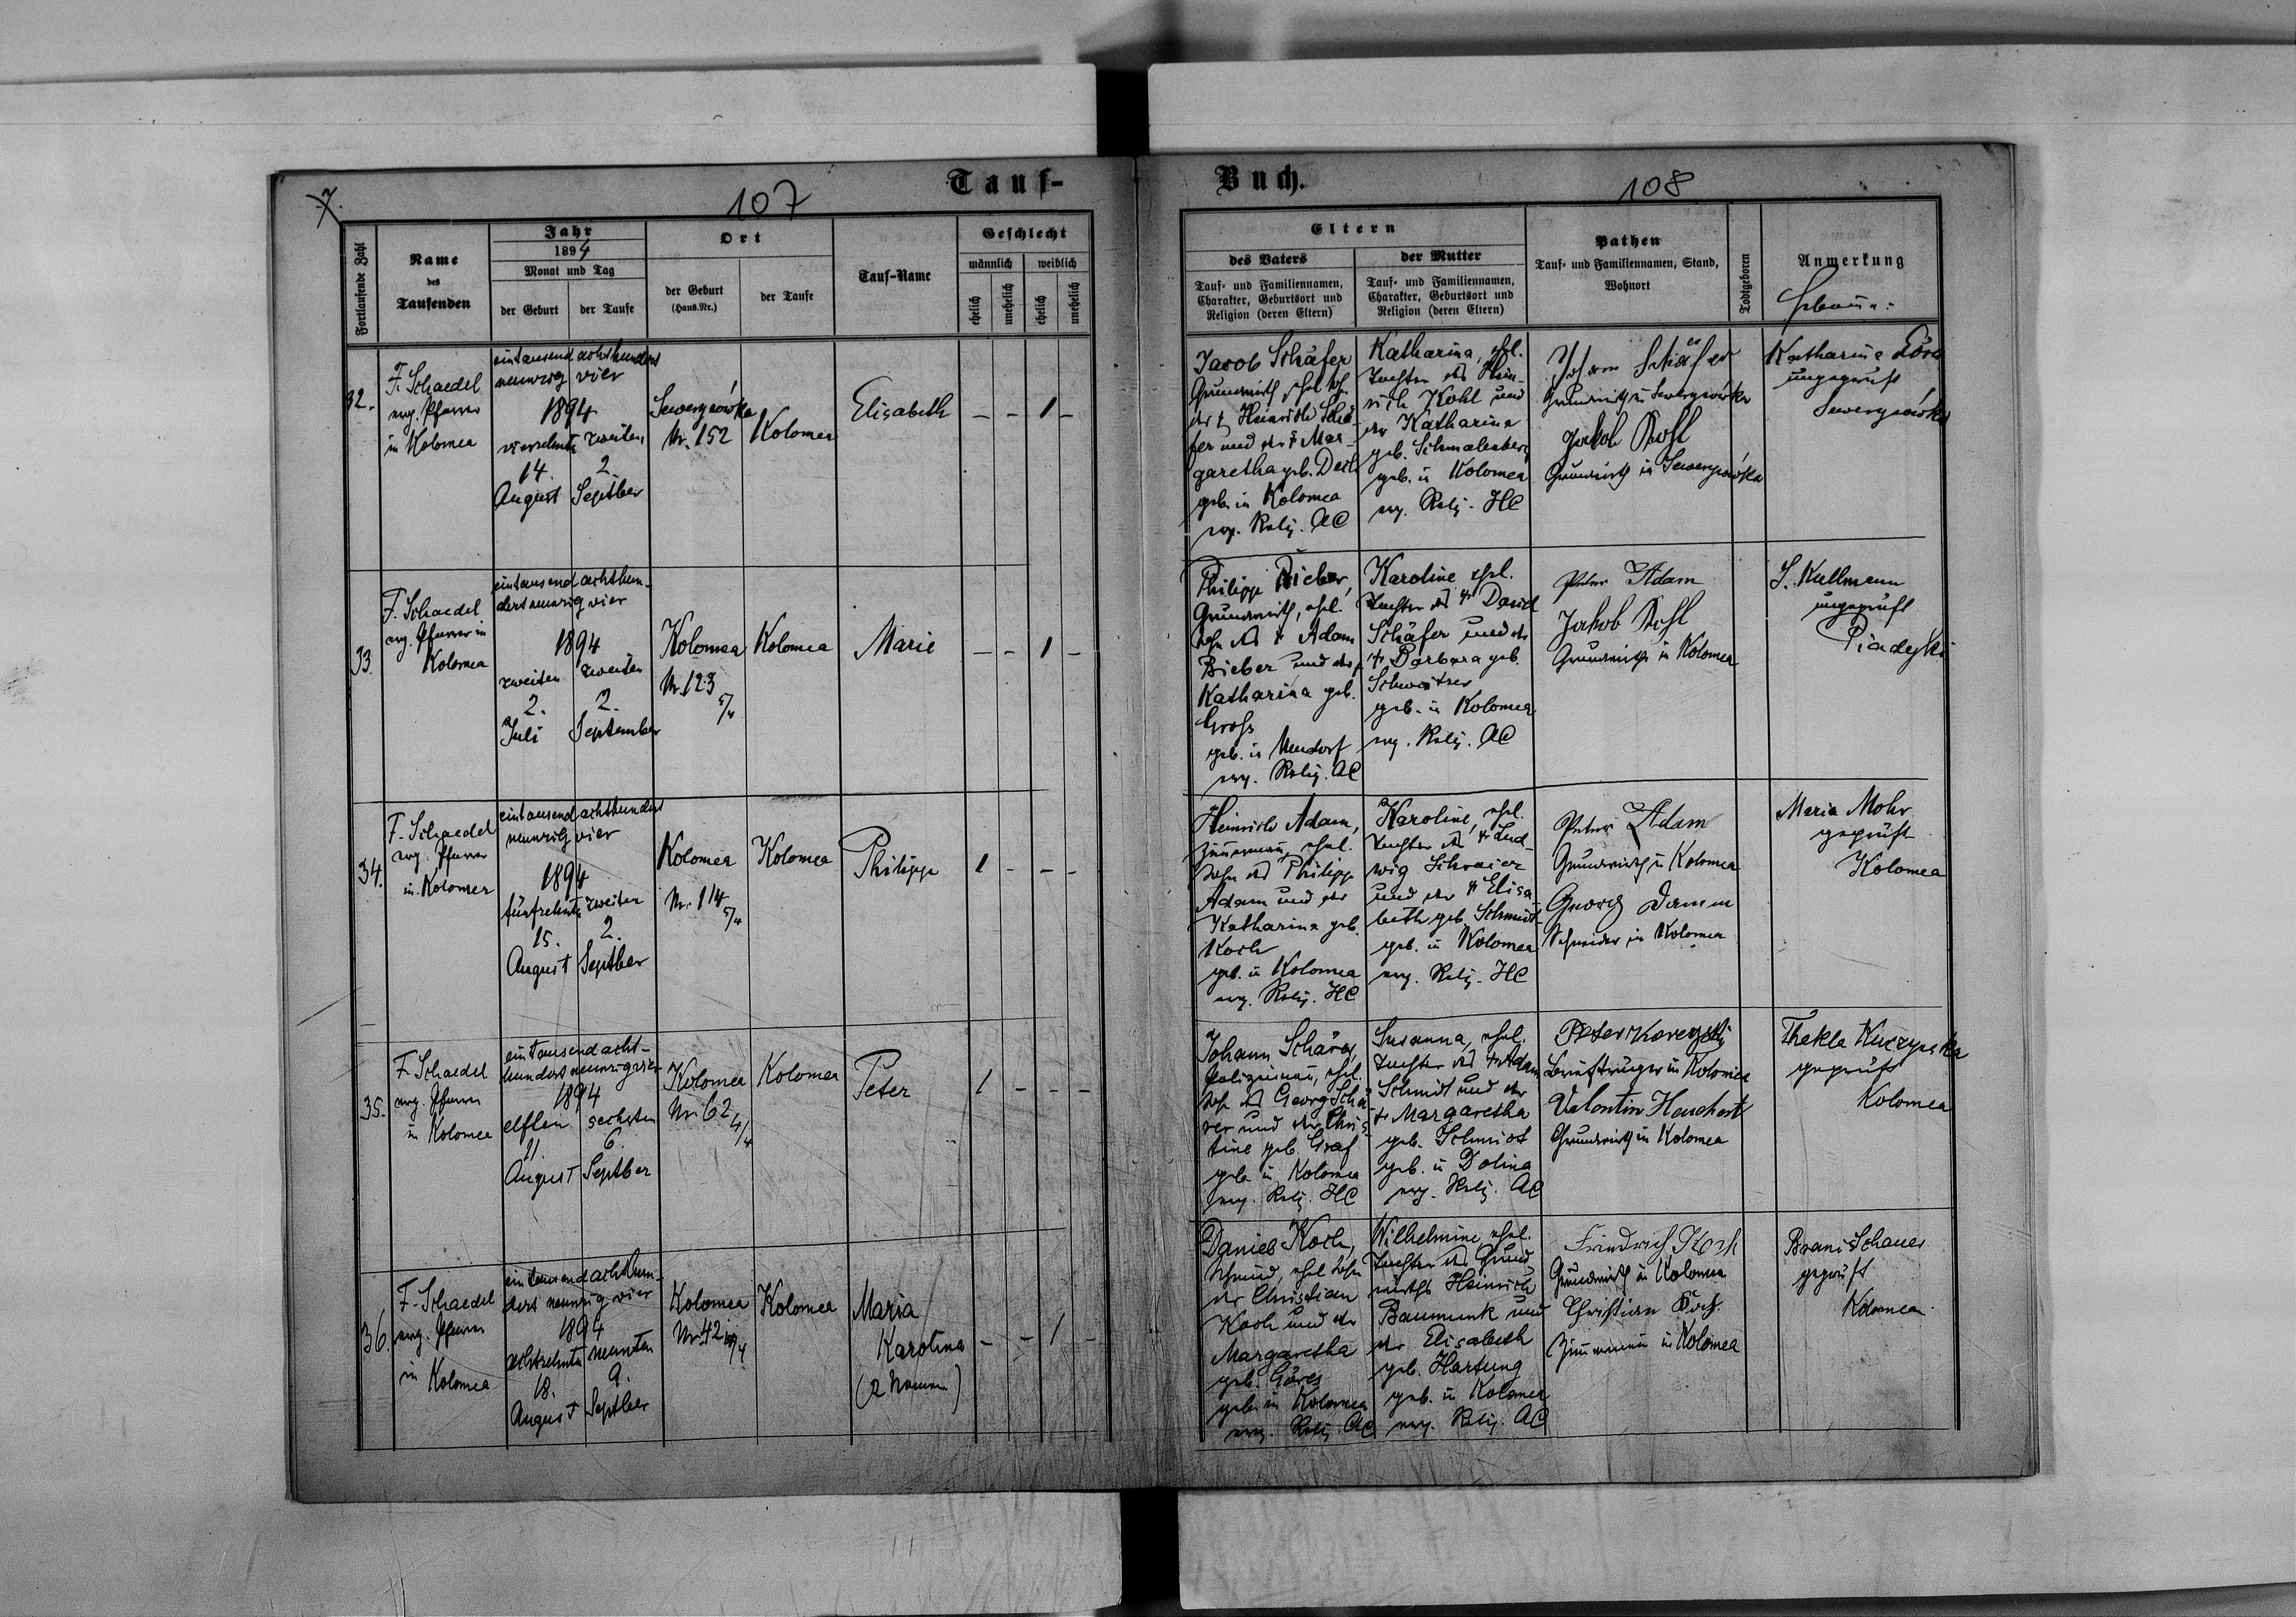 7.
107
Tauf-
Fortlaufende Zahl
Name
des
Taufenden
Jahr
1894
Monat und Tag
der Geburt
der Taufe
Ort
der Geburt
(Haus-Nr.)
der Taufe
Tauf-Name
Geschlecht
männlich
weiblich
ehelich
unehelich
ehelich
unehelich
32.
F. Schaedel
evg. Pfarrer
in Kolomea
eintausend achthundert
neunzig vier
1894
vierzehnte zweiten
14. 2
August Septber
Sewerynówka
Nr. 152
Kolomea
Elisabeth
- - 1 -
33.
F. Schaedel
evg. Pfarrer in
Kolomea
eintausend achthun-
dert neunzig vier
1894
zweiten zweiten
2. 2.
Juli September
Kolomea
Nr. 123
5/4
Kolomea
Marie
- - 1 -
34.
F. Schaedel
evg. Pfarrer
in Kolomea
eintausend achthundert
neunzig vier
1894
fünfzehnte zweiten
15. 2.
August Septber
Kolomea
Nr. 114
5/4
Kolomea
Philipp
1 - - -
35.
F. Schaedel
evg. Pfarrer
in Kolomea
eintausend acht-
hundert neunzig vier
1894
elften sechsten
11. 6.
August Septber
Kolomea
Nr. 62
4/4
Kolomea
Peter
1 - - -
36.
F. Schaedel
evg. Pfarrer
in Kolomea
eintausend achthun-
dert neunzig vier
1894
achtzehnte neunten
18. 9.
August Septber
Kolomea
Nr. 42
Kolomea
Maria
Karolina
(2 Namen)
- - 1 -
Buch.
108
Eltern
des Vaters
Tauf- und Familiennamen,
Charakter, Geburtsort und
Religion (deren Eltern)
der Mutter
Tauf- und Familiennamen,
Charakter, Geburtsort und
Religion (deren Eltern)
Pathen
Tauf- und Familiennamen, Stand,
Wohnort
Todtgeboren
Anmerkung
Jacob Schäfer
Grundwirth, ehel. Sohn
des † Heinrich Schä-
fer und der † Mar-
garetha geb.
geb. in Kolomea
evg. Relig. AC
Katharina, ehel.
Tochter des Hein-
rich Kohl und
der Katharina
geb. Schmalenberg
geb. in Kolomea
evg. Relig. HC
Johann Schäfer
Grundwirth in Sewerynówka
Jakob Kohl
Grundwirth in Sewerynówka
Katharina
ungeprüft
Sewerynówka
Philipp Bieber,
Grundwirth, ehel.
Sohn des † Adam
Bieber und der †
Katharina geb.
Gross
geb. in Neudorf
evg. Relig. AC
Karoline ehel.
Tochter des † David
Schäfer und der
† Barbara geb.
Schweitzer
geb. in Kolomea
evg. Relig. AC
Peter Adam
Jakob Kohl
Grundwirthe in Kolomea
S. Kullmann
ungeprüft
Piadyki
Heinrich Adam,
Zimmermann, ehel.
Sohn des Philipp
Adam und der
Katharina geb.
Koch
geb. in Kolomea
evg. Relig. HC
Karoline, ehel.
Tochter des † Lud-
wig Schreier
und der † Elisa-
beth geb. Schmidt
geb. in Kolomea
evg. Relig. HC
Peter Adam
Grundwirth in Kolomea
Georg Damm
Schneider in Kolomea
Maria Mohr
geprüft
Kolomea
Johann Schärer,
Polizeimann, ehel.
Sohn des Georg Schä-
rer und der Chris-
tine geb. Graf
geb. in Kolomea
evg. Relig. HC
Susanna, ehel.
Tochter des † Adam
Schmidt und der
† Margaretha
geb. Schmidt
geb. in Dolina
evg. Relig. AC
Peter
Briefträger in Kolomea
Valentin Heuchert
Grundwirth in Kolomea
Thekla Kuczynska
geprüft
Kolomea
Daniel Koch,
Schmied, ehel. Sohn
des Christian
Koch und der
Margaretha
geb. Göres
geb. in Kolomea
evg. Relig. AC
Wilhelmine, ehel.
Tochter des Grund-
wirths Heinrich
Baumunk und
der Elisabeth
geb. Hartung
geb. in Kolomea
evg. Relig. AC
Friedrich Koch
Grundwirth in Kolomea
Christian Koch.
Zimmermann in Kolomea
Schauer
geprüft
Kolomea